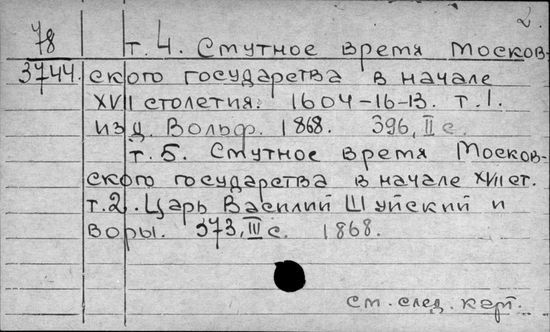 2.
78
3744.
т. 4. Смутное время Москов-
ского государства в начале
XVII столетия: 1604-16-13. т. 1.
изд. Вольф. 1868. 396, II с.
т. 5. Смутное время Москов-
ского государства в начале XVII ст.
т. 2. Царь Василий Шуйский и
воры. 373, III с. 1868.
см. след. карт.